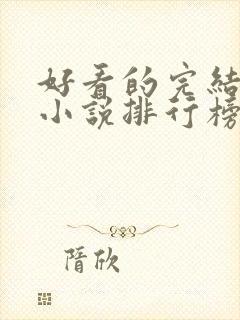 好看的完結
小說排行榜
隋欣